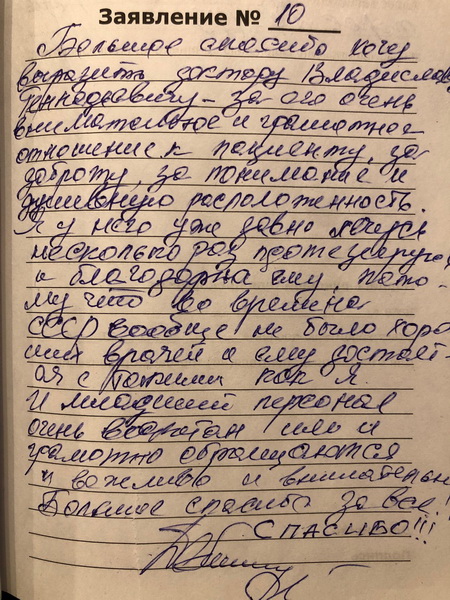 Заявление № 10
Большое спасибо хочу
выразить доктору Владиславу
Геннадьевичу – за его очень
внимательное и грамотное
отношение к пациенту, за
доброту, за понимание и
душевную расположенность.
Я у него уже давно лечусь
несколько раз протезирую
и благодарна ему, пото-
му что во времена
СССР вообще не было хоро
ших врачей а ему достаёт-
ся с такими как я.
И младший персонал
очень воспитан и
грамотно обращаются
и вежливо и внимателен
Большое спасибо за всё!
СПАСИБО!!!